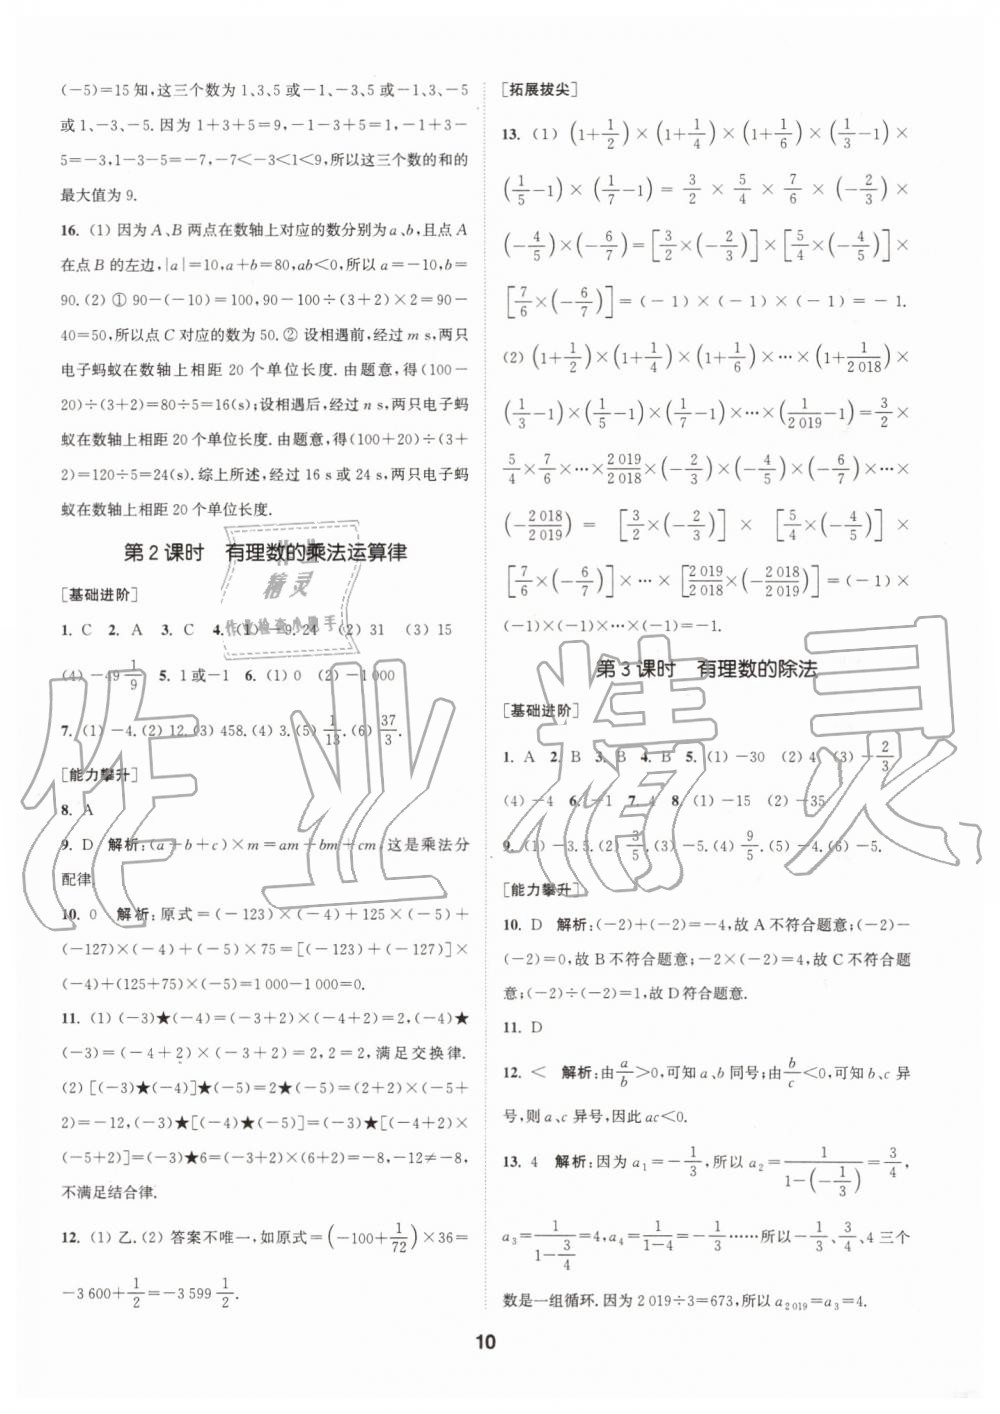 (-5)=15知,这三个数为1、3、5或-1、-3、5或-1、3、-5
或1、-3、-5.因为1+3+5=9,-1-3+5=1,-1+3-
5=-3,1-3-5=-7,-7<-3<1<9,所以这三个数的和的
最大值为9.
16. (1) 因为A、B两点在数轴上对应的数分别为a、b,且点A
在点B的左边,|a|=10,a+b=80,ab<0,所以a=-10,b=
90.(2) ① 90-(-10)=100,90-100÷(3+2)×2=90-
40=50,所以点C对应的数为50.② 设相遇前,经过m s,两只
电子蚂蚁在数轴上相距20个单位长度.由题意,得(100-
20)÷(3+2)=80÷5=16(s);设相遇后,经过n s,两只电子蚂
蚁在数轴上相距20个单位长度.由题意,得(100+20)÷(3+
2)=120÷5=24(s).综上所述,经过16 s或24 s,两只电子蚂
蚁在数轴上相距20个单位长度.
第2课时 有理数的乘法运算律
[基础进阶]
1. C 2. A 3. C 4. (1) -9.24 (2) 31 (3) 15
(4) -49 1/9 5. 1或-1 6. (1) 0 (2) -1 000
7. (1) -4.(2) 12.(3) 458.(4) 3.(5) 1/13.(6) 37/3.
[能力攀升]
8. A
9. D 解析:(a+b+c)×m=am+bm+cm,这是乘法分
配律.
10. 0 解析:原式=(-123)×(-4)+125×(-5)+
(-127)×(-4)+(-5)×75=[(-123)+(-127)]×
(-4)+(125+75)×(-5)=1 000-1 000=0.
11. (1) (-3)★(-4)=(-3+2)×(-4+2)=2,(-4)★
(-3)=(-4+2)×(-3+2)=2,2=2,满足交换律.
(2) [(-3)★(-4)]★(-5)=2★(-5)=(2+2)×(-5+
2)=-12,(-3)★[(-4)★(-5)]=(-3)★[(-4+2)×
(-5+2)]=(-3)★6=(-3+2)×(6+2)=-8,-12≠-8,
不满足结合律.
12. (1) 乙.(2) 答案不唯一,如原式=(-100+1/72)×36=
-3 600+1/2=-3 599 1/2.
[拓展拔尖]
13. (1) (1+1/2)×(1+1/4)×(1+1/6)×(1/3-1)×
(1/5-1)×(1/7-1)=3/2×5/4×7/6×(-2/3)×
(-4/5)×(-6/7)=[3/2×(-2/3)]×[5/4×(-4/5)]×
[7/6×(-6/7)]=(-1)×(-1)×(-1)=-1.
(2) (1+1/2)×(1+1/4)×(1+1/6)×…×(1+1/2 018)×
(1/3-1)×(1/5-1)×(1/7-1)×…×(1/2 019-1)=3/2×
5/4×7/6×…×2 019/2 018×(-2/3)×(-4/5)×(-6/7)×…×
(-2 018/2 019)=[3/2×(-2/3)]×[5/4×(-4/5)]×
[7/6×(-6/7)]×…×[2 019/2 018×(-2 018/2 019)]=(-1)×
(-1)×(-1)×…×(-1)=-1.
第3课时 有理数的除法
[基础进阶]
1. A 2. B 3. B 4. B 5. (1) -30 (2) 4 (3) -2/3
(4) -4 6. -1 7. 4 8. (1) -15 (2) -35
9. (1) -3.5.(2) 3/5.(3) -5.(4) 9/5.(5) -4.(6) -5.
[能力攀升]
10. D 解析:(-2)+(-2)=-4,故A不符合题意;(-2)-
(-2)=0,故B不符合题意;-2×(-2)=4,故C不符合题
意;(-2)÷(-2)=1,故D符合题意.
11. D
12. < 解析:由a/b>0,可知a、b同号;由b/c<0,可知b、c异
号,则a、c异号,因此ac<0.
13. 4 解析:因为a₁=-1/3,所以a₂=1/(1-(-1/3))=3/4,
a₃=1/(1-3/4)=4,a₄=1/(1-4)=-1/3……所以-1/3、3/4、4三个
数是一组循环.因为2 019÷3=673,所以a₂ ₀₁₉=a₃=4.
10
作业精灵
作业检查小助手
作业精灵